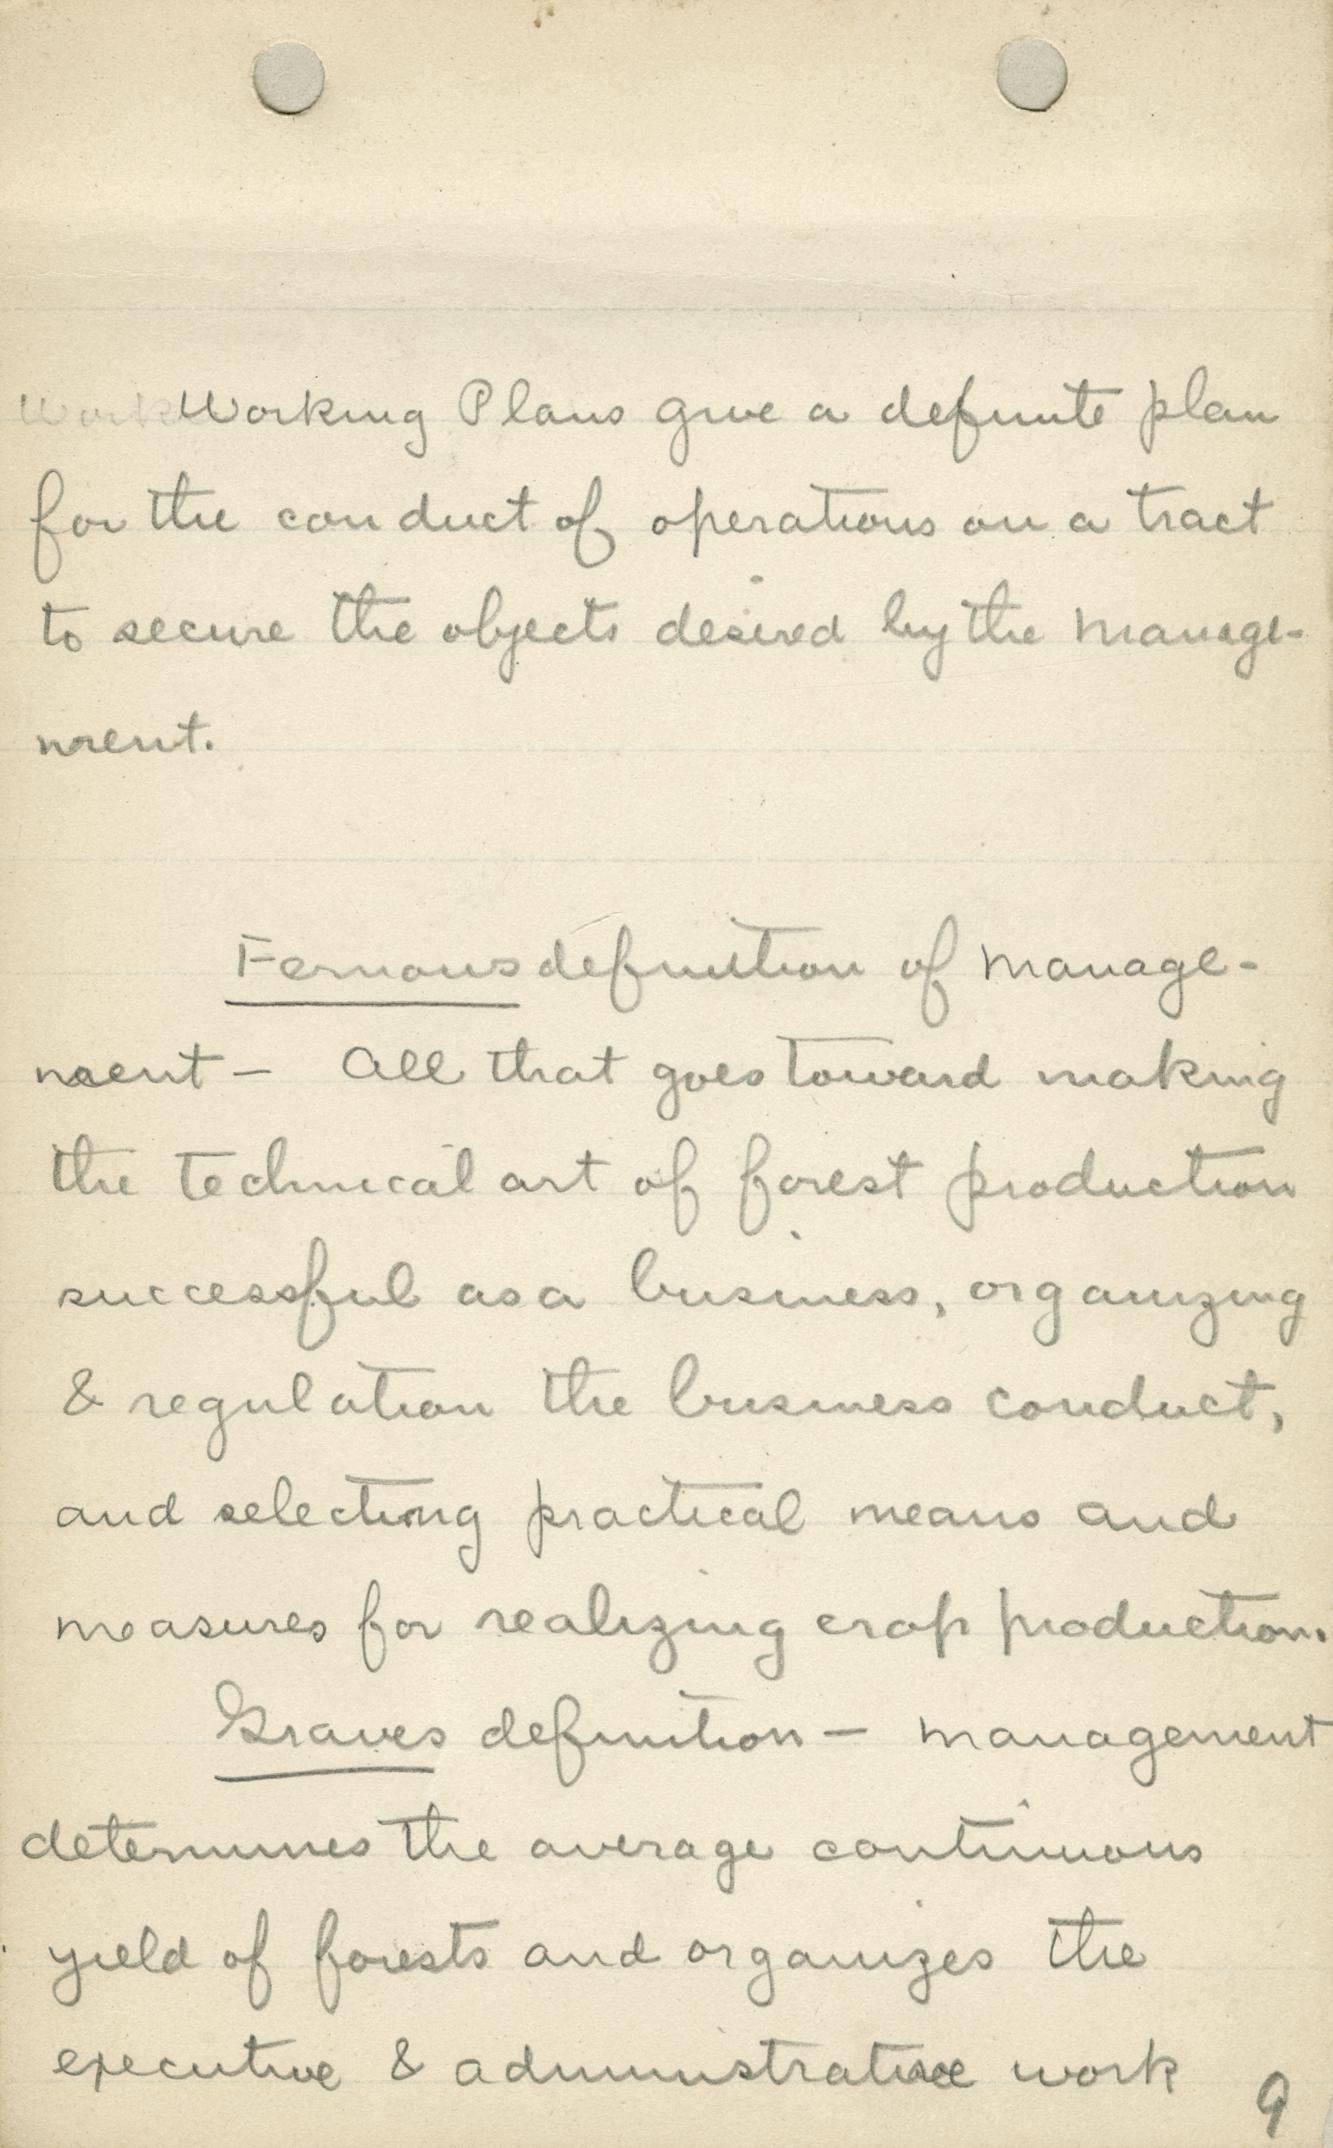 Work Working Plans give a definite plan
for the conduct of operations on a tract
to secure the objects desired by the manage-
ment.
Fernows definition of manage-
ment — All that goes toward making
the technical art of forest production
successful as a business, organizing
& regulation the business conduct,
and selecting practical means and
measures for realizing crop production.
Graves definition — management
determines the average continuous
yield of forests and organizes the
executive & administrative work
9